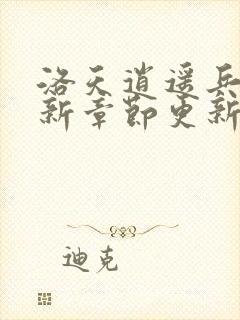 洛天逍遥兵
新章节更新
迪克